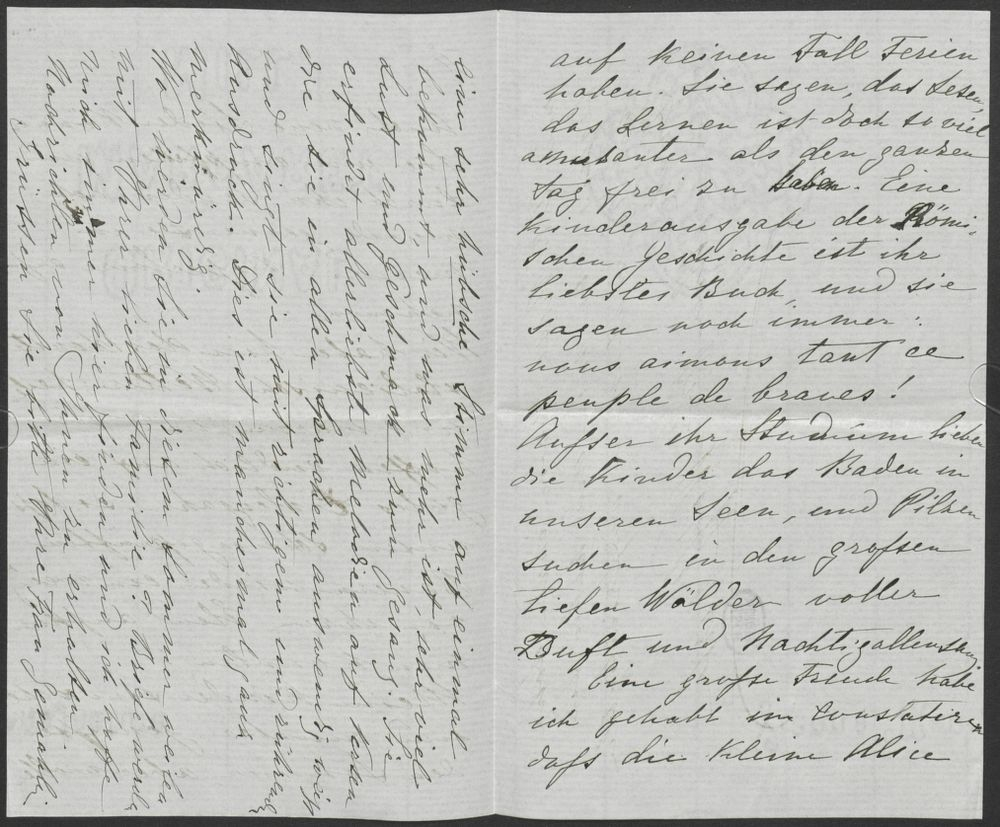 auf keinen Fall Ferien
haben. Sie sagen, das Lesen,
das Lernen ist doch so viel
amusanter als den ganzen
Tag frei zu haben. Eine
Kinderausgabe der Römi-
schen Geschichte ist ihr
liebstes Buch, und sie
sagen noch immer:
nous aimons tant ce
peuple de braves!
Aufser ihr Studium lieben
die Kinder das Baden in
unseren Seen, und Pilzen
suchen in den grofsen
tiefen Wälder voller
Duft und Nachtigallensang
Eine grofse Freude habe
ich gehabt im constatiren
dafs die kleine Alice
eine sehr hübsche Stimme auf einmal
bekommt, und was mehr ist, sehr viel
Lust und Geschmack zum Gesang. Sie
erfindet allerliebste Melodien auf
die sie in allen Sprachen auswendig weiss
und singt sie mit richtigem und rührend
Ausdruck. Dies ist manchesmal ganz
merkwürdig.
Wo werden Sie in diesem Sommer weilen
mit Ihrer lieben Familie? Briefe werden
mich immer hier finden und ich hoffe
Nachrichten von Ihnen zu erhalten
Grüssen Sie bitte Ihre Frau Gemahlin